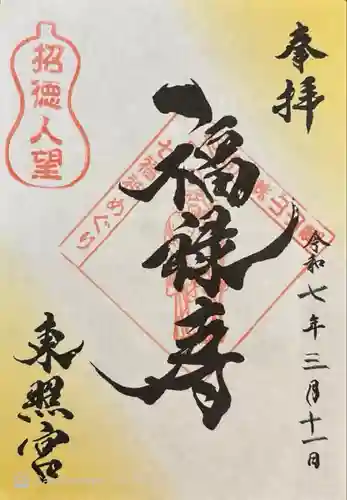 奉拝
令和七年三月十一日
福禄寿
招徳人望
七福神めぐり
東照宮